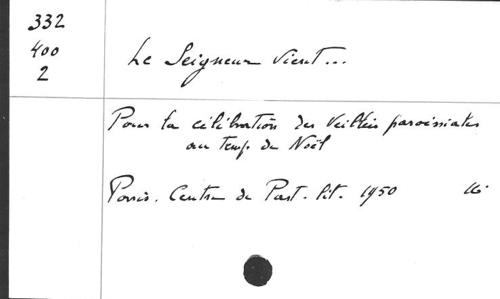 332
400
2
Le Seigneur vient...
Pour la célébration des Veillées paroissiales
au Temps de Noël
Paris. Centre de Past. lit. 1950